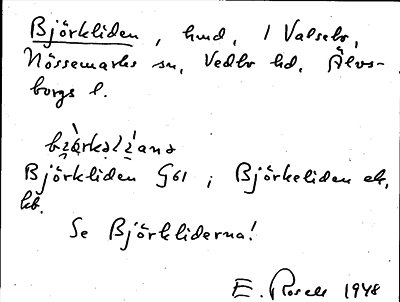 Björkliden, hmd, / Valsebo,
Nössemarks sn, Vedbo hd, Älvs-
borgs l.
Björkliden G61; Björkeliden ek,
kb.
Se Björkliderna!
E. Rosell 1948